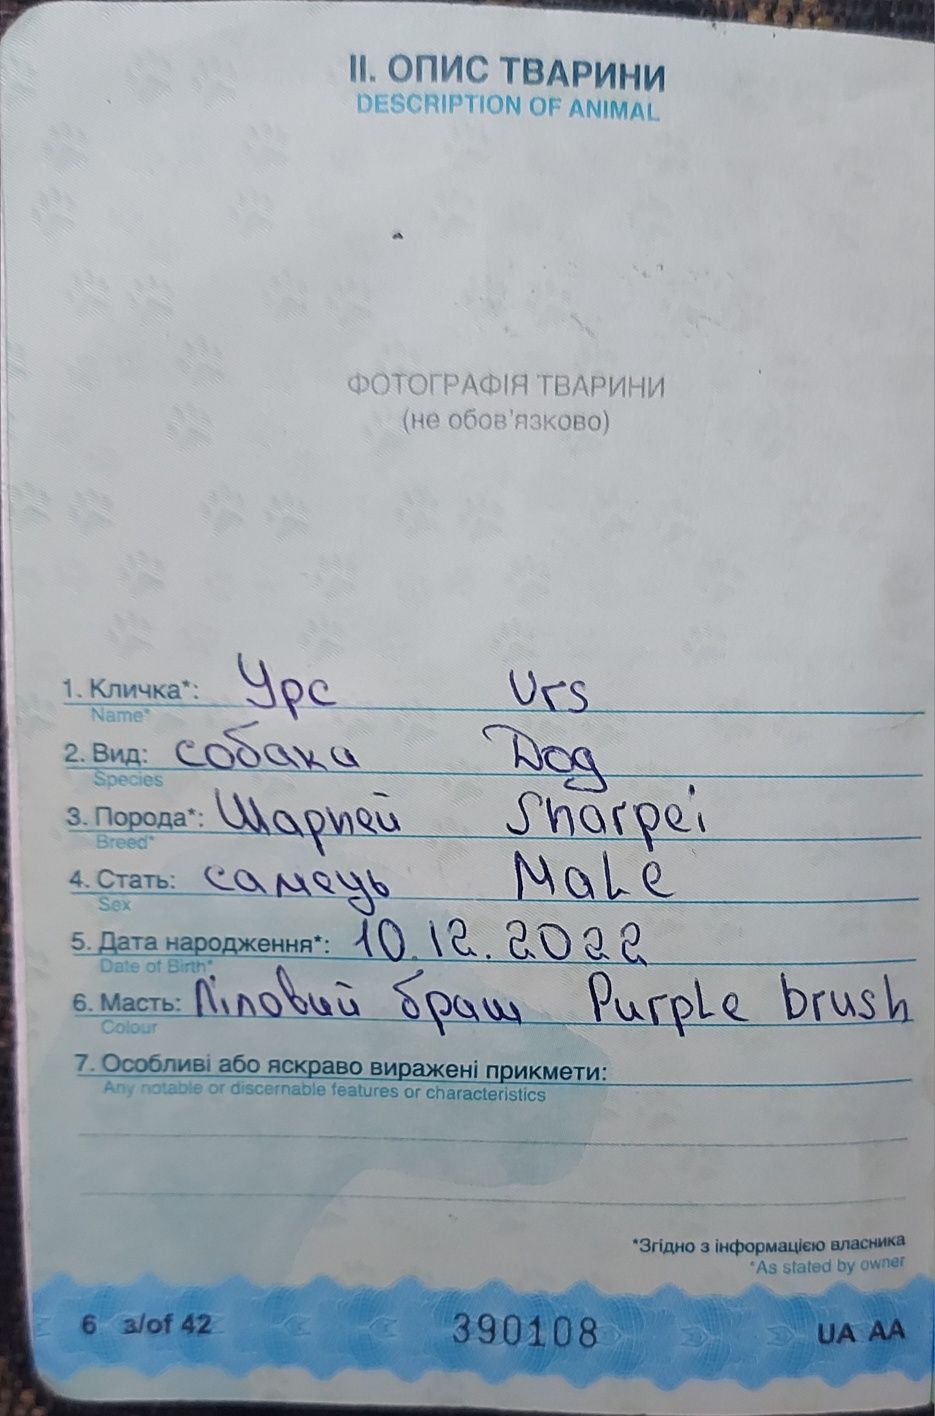 II. ОПИС ТВАРИНИ
DESCRIPTION OF ANIMAL
ФОТОГРАФІЯ ТВАРИНИ
(не обов'язково)
1. Кличка*: Урс Urs
Name*
2. Вид: собака Dog
Species
3. Порода*: Шарпей Sharpei
Breed*
4. Стать: самець Male
Sex
5. Дата народження*: 10.12.2022
Date of Birth*
6. Масть: Ліловий браш Purple brush
Colour
7. Особливі або яскраво виражені прикмети:
Any notable or discernable features or characteristics
*Згідно з інформацією власника
*As stated by owner
6 з/of 42 390108 UA AA